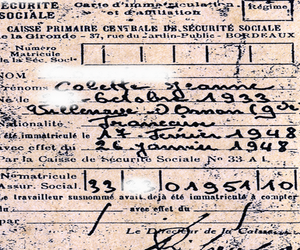 SÉCURITÉ SOCIALE
Carte d'immatriculation et d'affiliation
Régime
CAISSE PRIMAIRE CENTRALE DE SÉCURITÉ SOCIALE
de la Gironde - 37, rue du Jardin-Public - BORDEAUX
Numéro Matricule de la Séc. Soc.
NOM
Prénoms Colette Jeanne
Octobre 1933
Française
été immatriculé le 17 Février 1948
avec effet du 26 janvier 1948
Par la Caisse de Sécurité Sociale No 33 A 1.
No matricule Assur. Social. 33 01951 10
Le travailleur susnommé avait déjà été immatriculé à compter
du avec effet du
Par
Le Directeur de la Caisse